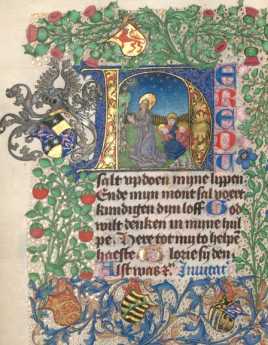 HEREDU
salt updoen mijne lippen
Ende mijn mont sal voert
kundigen dijn loff God
wilt denken in mijne hul
pe Here tot mij to helpe
haeste Glorie sy den
Alst was Invitat